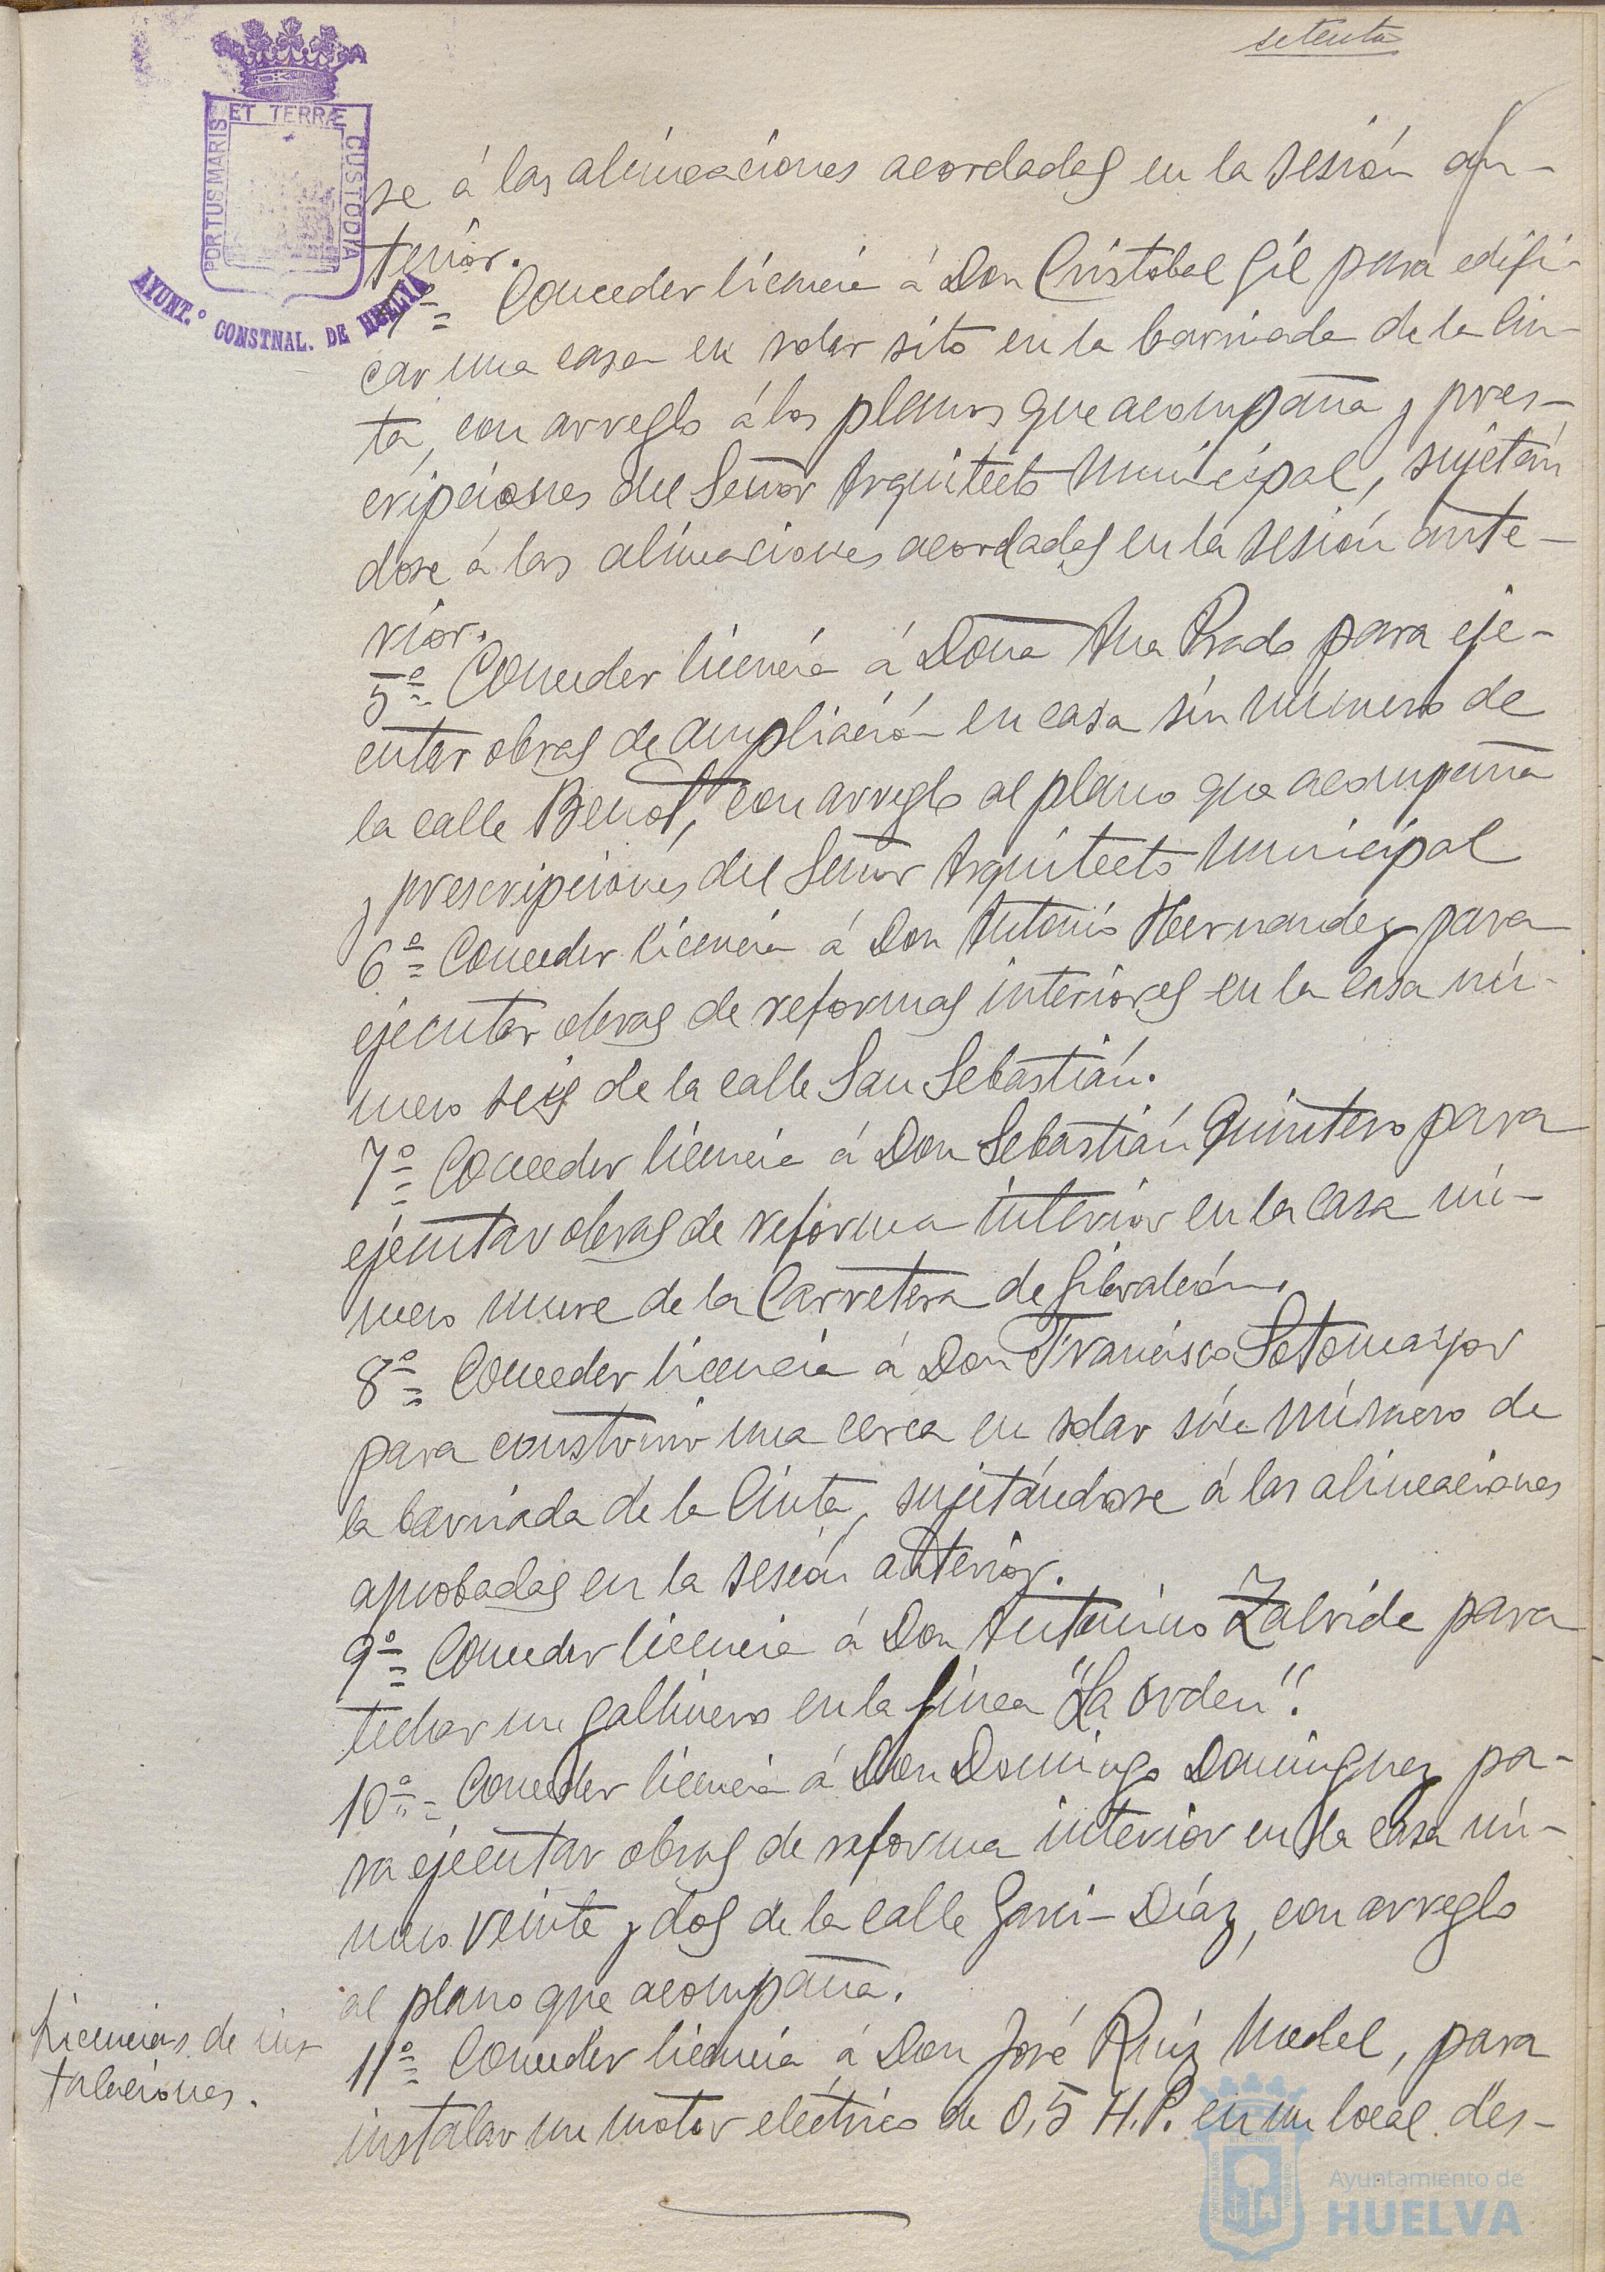 setenta
ET TERRÆ
PORTUS MARIS
CUSTODIA
AYUNT.º CONSTNAL. DE HUELVA
se á las alineaciones acordadas en la sesión an-
terior.
4º= Conceder licencia á Don Cristobal Gil para edifi-
car una casa en solar sito en la barriada de la Cin-
ta, con arreglo á los planos que acompaña y pres-
cripciones del Señor Arquitecto Municipal, sujetán
dose á las alineaciones acordadas en la sesión ante-
rior.
5º= Conceder licencia á Doña Ana Prado para eje-
cutar obras de ampliación en casa sin número de
la calle Benot, con arreglo al plano que acompaña
y prescripciones del Señor Arquitecto Municipal
6º= Conceder licencia á Don Antonio Hernandez para
ejecutar obras de reformas interiores en la casa nú-
mero seis de la calle San Sebastián.
7º= Conceder licencia á Don Sebastián Quintero para
ejecutar obras de reforma interior en la casa nú-
mero nueve de la Carretera de Gibraleón.
8º= Conceder licencia á Don Francisco Sotomayor
para construir una cerca en solar sin número de
la barriada de la Cinta, sujetándose á las alineaciones
aprobadas en la sesión anterior.
9º= Conceder licencia á Don Antonino Zalvide para
techar un gallinero en la finca "La Orden".
10º= Conceder licencia á Don Domingo Dominguez pa-
ra ejecutar obras de reforma interior en la casa nú-
mero veinte y dos de la calle Garci-Díaz, con arreglo
al plano que acompaña.
Licencias de ins
talaciones.
11º= Conceder licencia á Don José Ruiz Medel, para
instalar un motor eléctrico de 0,5 H.P. en un local des-
Ayuntamiento de
HUELVA